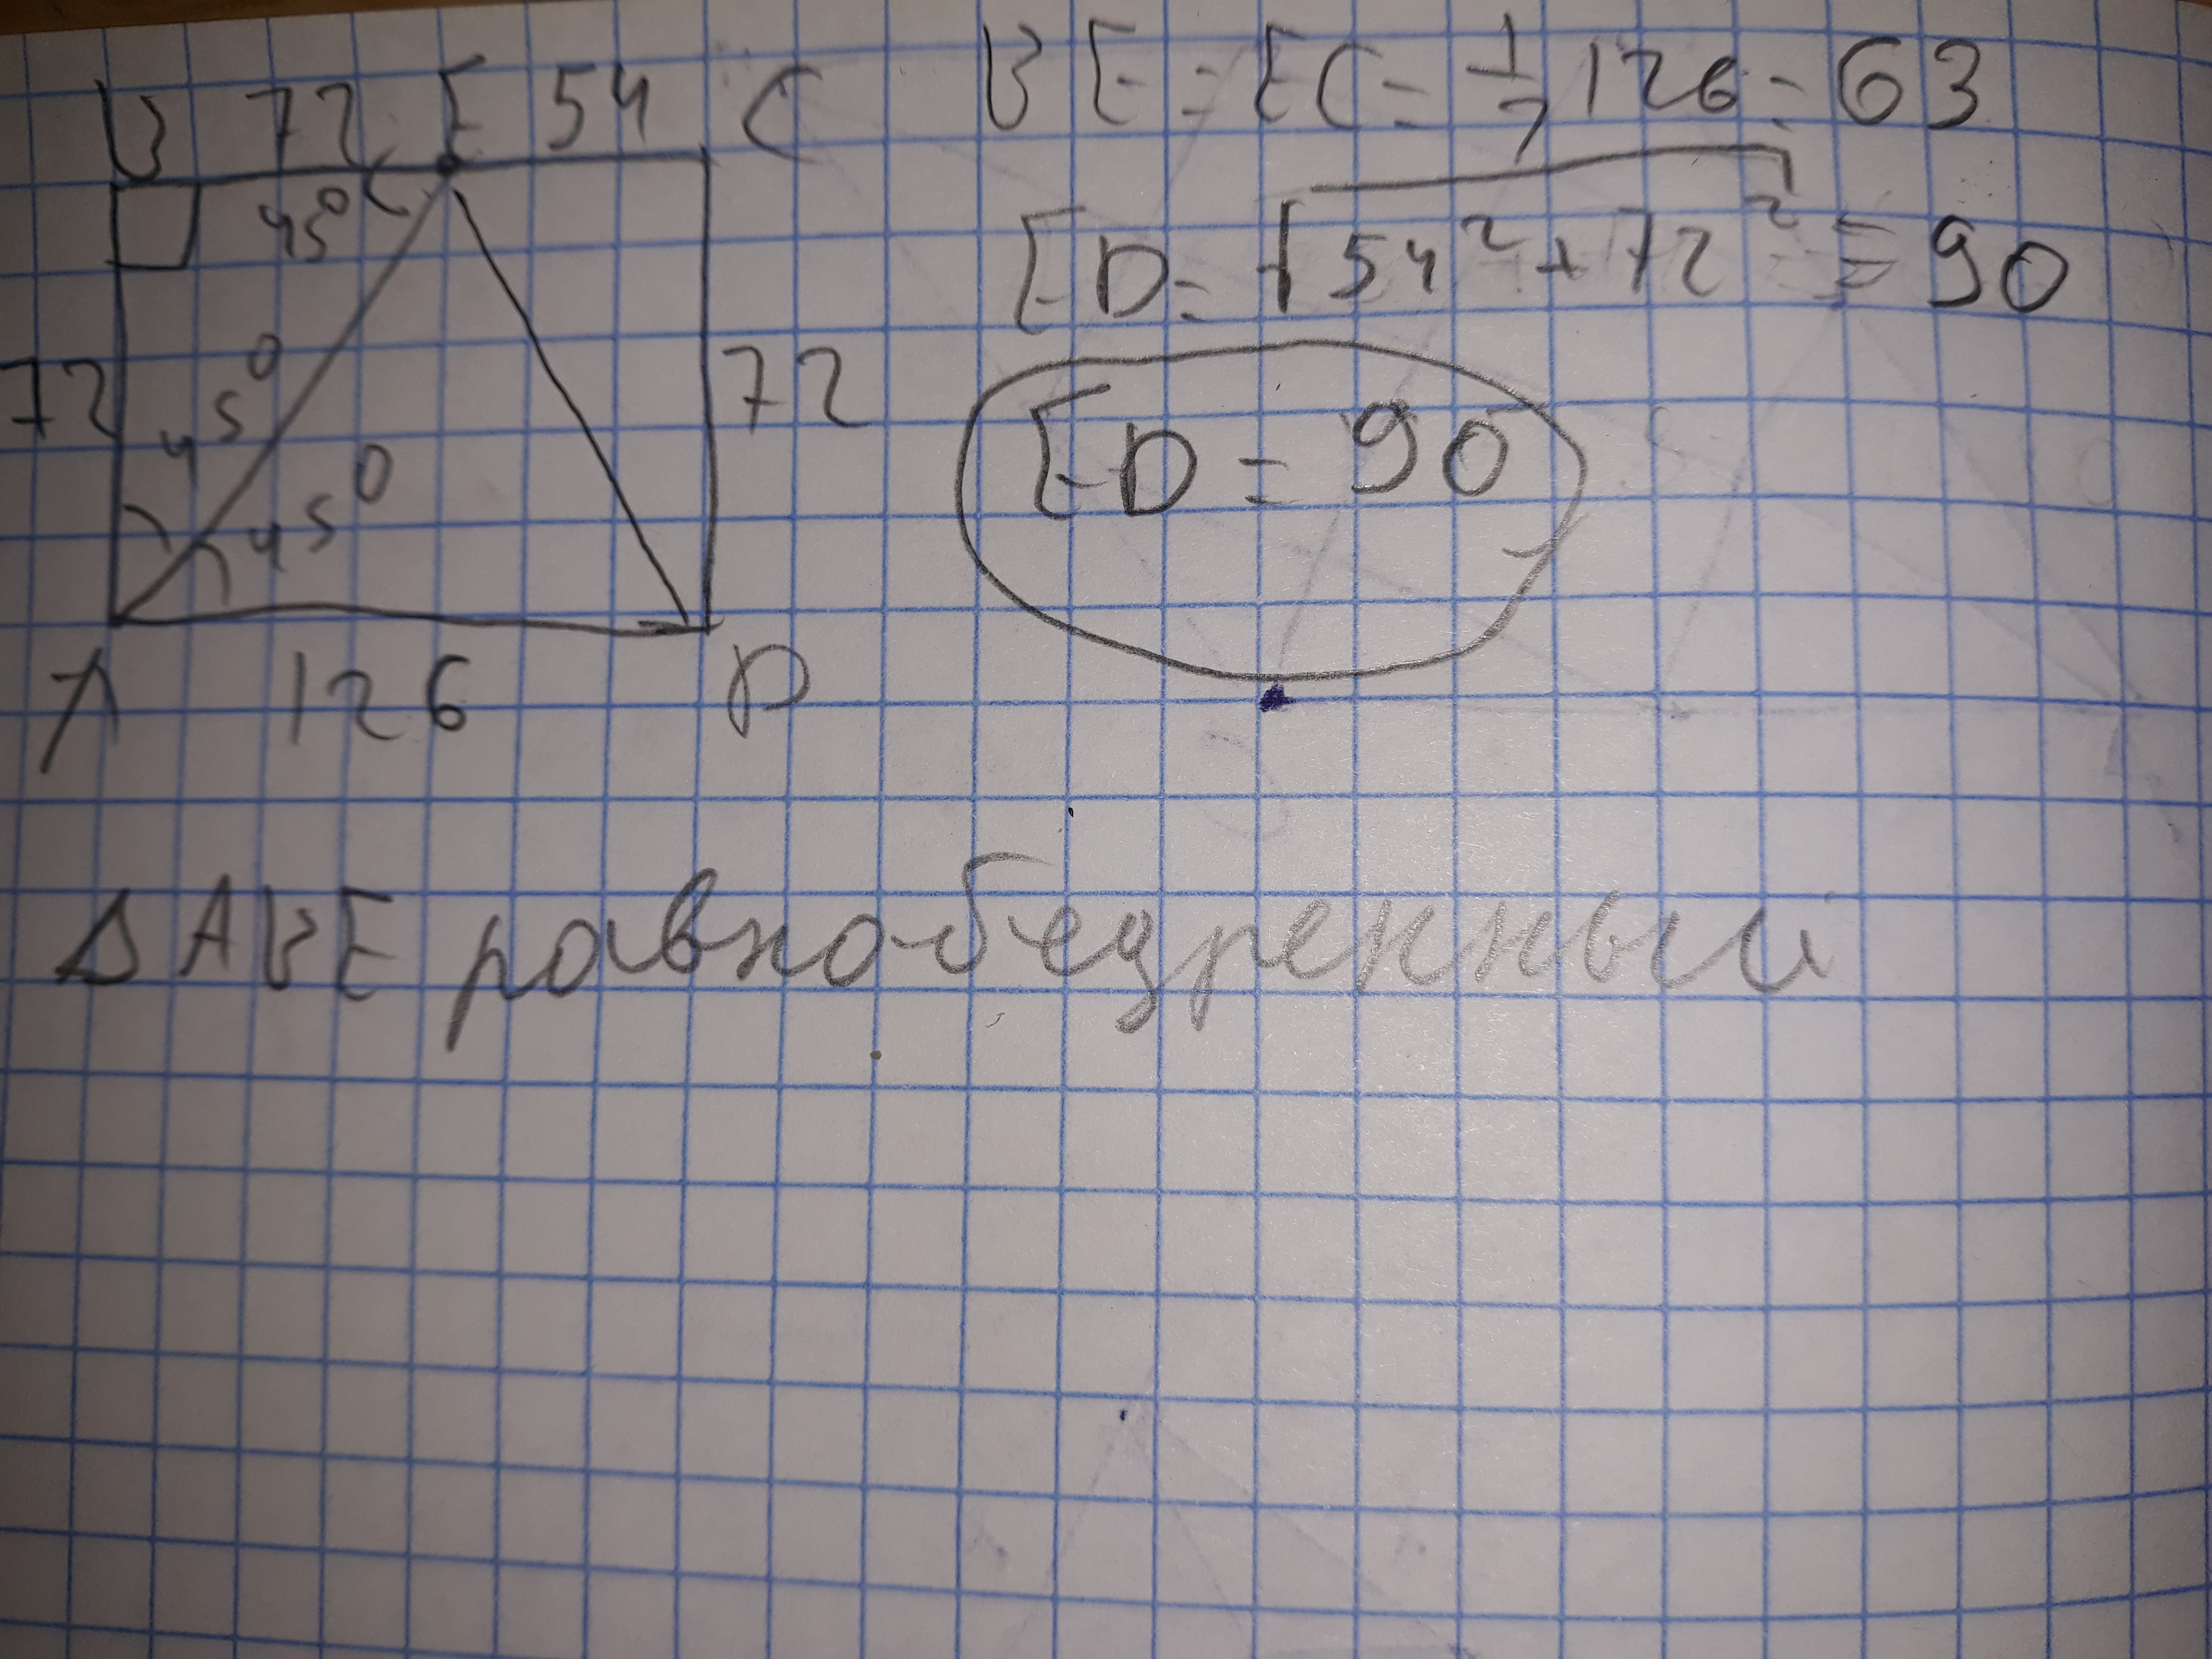 B 72 E 54 C
45°
72 45° 72
45°
A 126 D
BE = EC = 1/2 126 = 63
ED = √54² + 72² = 90
ED = 90
Δ ABE равнобедренный